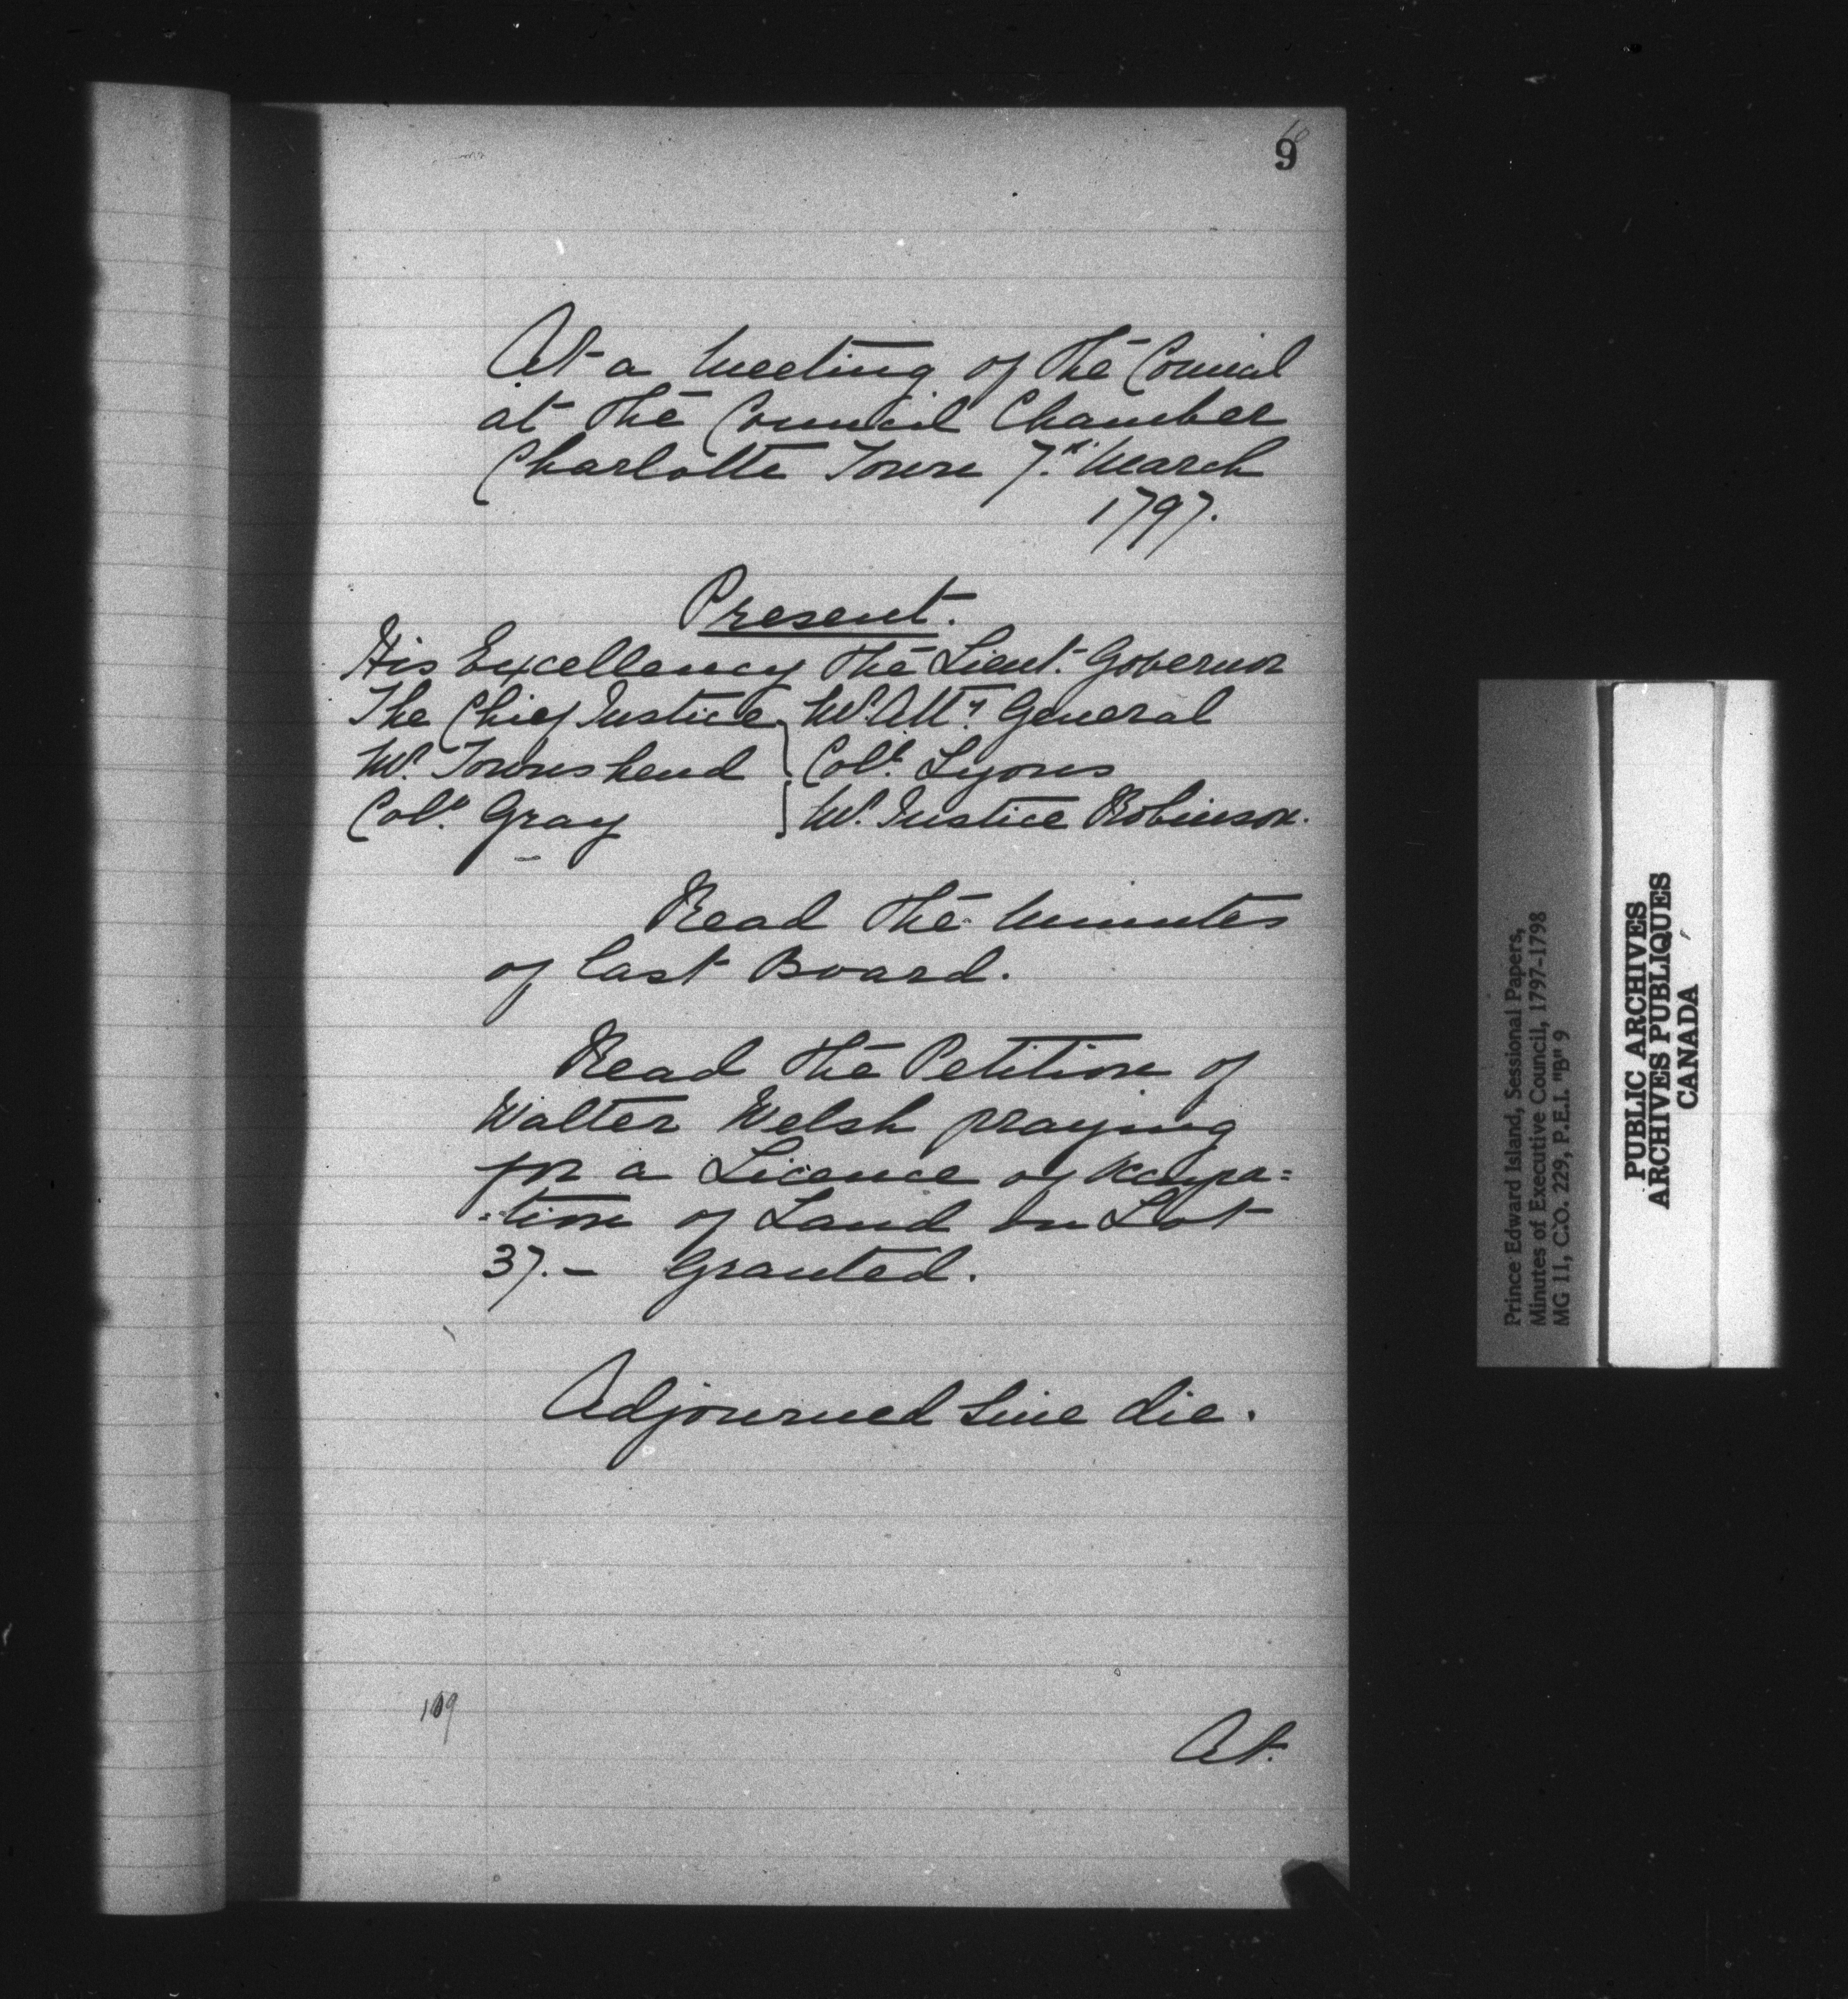 9
At a Meeting of the Council
at the Council Chamber
Charlotte Town 7.th March
1797.
Present.
His Excellency the Lieut. Governor
The Chief Justice } Mr. Atty. General
Mr. Townshend } Coll. Lyons
Coll. Gray } Mr. Justice Robinson.
Read the Minutes
of last Board.
Read the Petition of
Walter Welsh praying
for a Licence of occupa=
=tion of Land on Lot
37.– Granted.
Adjourned Sine die.
109
At.
Prince Edward Island, Sessional Papers,
Minutes of Executive Council, 1797-1798
MG 11, C.O. 229, P.E.I. "B" 9
PUBLIC ARCHIVES
ARCHIVES PUBLIQUES
CANADA